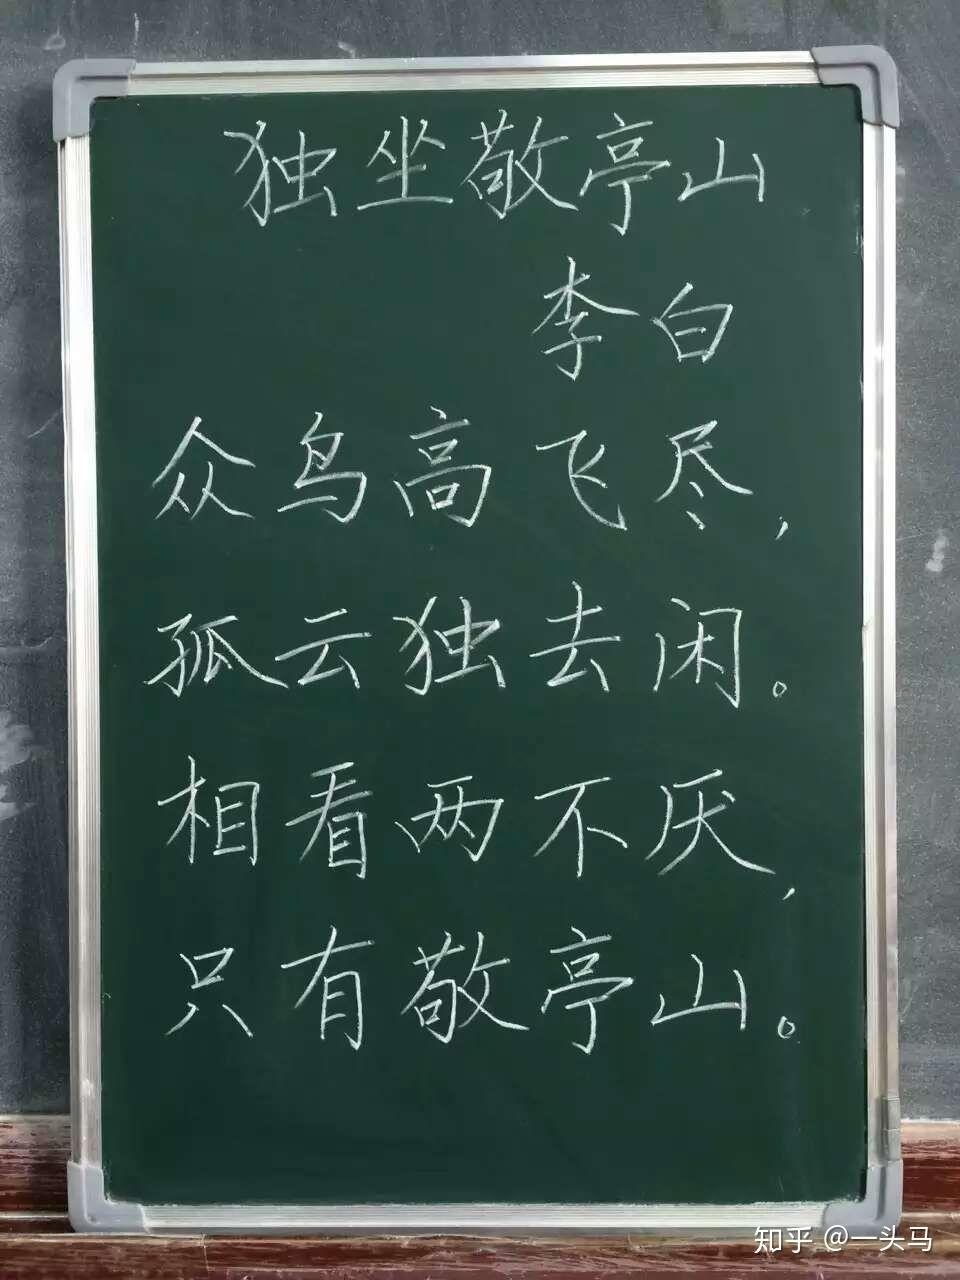 独坐敬亭山
李白
众鸟高飞尽，
孤云独去闲。
相看两不厌，
只有敬亭山。
知乎 @一头马